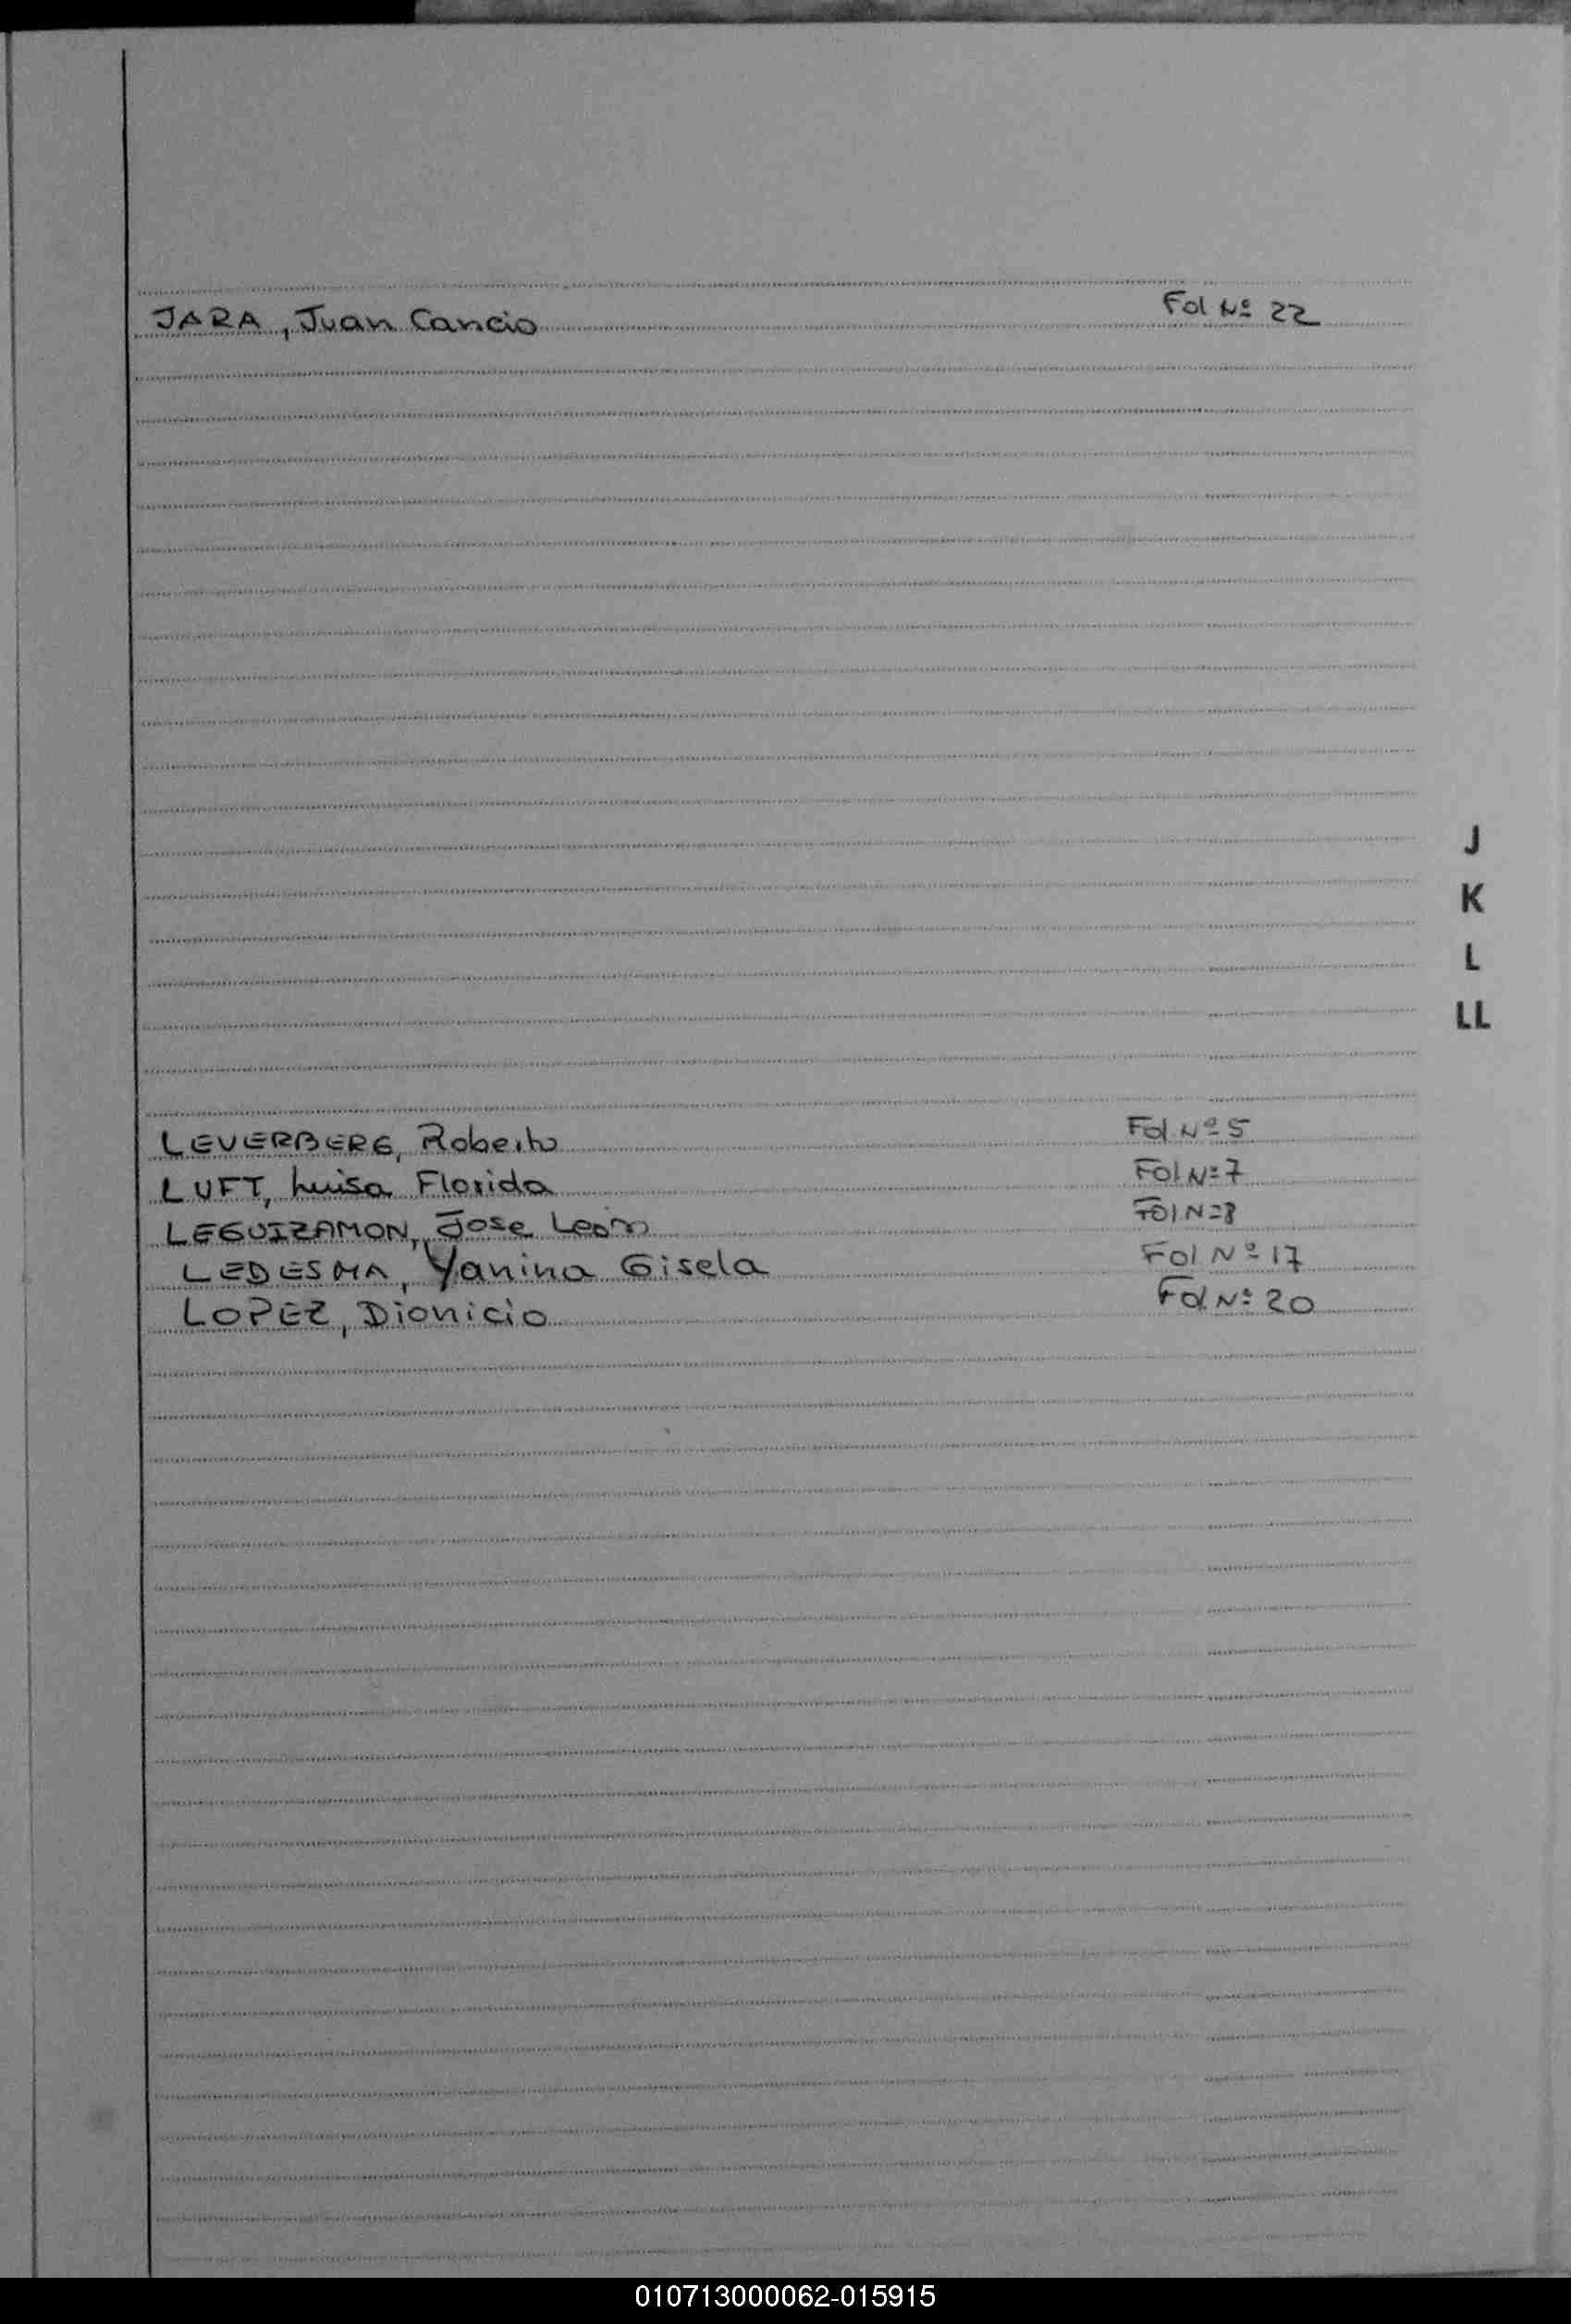 JARA, Juan Cancio Fol Nº 22
J
K
L
LL
LEVERBERG, Roberto Fol Nº 5
LUFT, Luisa Florida Fol Nº 7
LEGUIZAMON, Jose León Fol Nº 8
LEDESMA, Yanina Gisela Fol Nº 17
LOPEZ, Dionicio Fol Nº 20
010713000062-015915